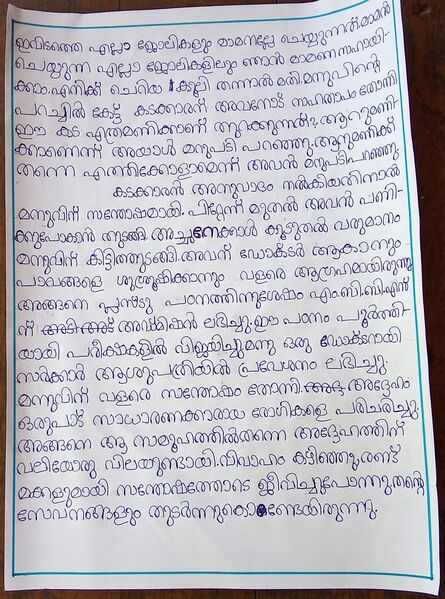 ഇവിടത്തെ എല്ലാ ജോലികളും മാമനല്ലേ ചെയ്യുന്നത്.മാമൻ
ചെയ്യുന്ന എല്ലാ ജോലികളിലും ഞാൻ മാമനെ സഹായി-
ക്കാം.എനിക്ക് ചെറിയ കൂലി തന്നാൽ മതി.മനുവിന്റെ
പറച്ചിൽ കേട്ട് കടക്കാരന് അവനോട് സഹതാപം തോന്നി
ഈ കട എത്രമണിക്കാണ് തുറക്കുന്നത്?.ആറുമണി-
ക്കാണെന്ന് അയാൾ മറുപടി പറഞ്ഞു.ആറുമണിക്ക്
തന്നെ എത്തിക്കോളാമെന്ന് അവൻ മറുപടിപറഞ്ഞു.
കടക്കാരൻ അനുവാദം നൽകിയതിനാൽ
മനുവിന് സന്തോഷമായി.പിറ്റേന്ന് മുതൽ അവൻ പണി-
ക്കുപോകാൻ തുടങ്ങി.അച്ഛനേക്കാൾ കൂടുതൽ വരുമാനം
മനുവിന് കിട്ടിത്തുടങ്ങി.അവന് ഡോക്ടർ ആകാനും
പാവങ്ങളെ ശുശ്രൂഷിക്കാനും വളരെ ആഗ്രഹമായിരുന്നു
അങ്ങനെ പ്ലസ്ടു പഠനത്തിനുശേഷം എം.ബി.ബി.എസ്
ന് അഡ്മിഷൻ ലഭിച്ചു.ഈ പഠനം പൂർത്തി-
യായി പരീക്ഷകളിൽ വിജയിച്ചു.മനു ഒരു ഡോക്ടറായി
സർക്കാർ ആശുപത്രിയിൽ പ്രവേശനം ലഭിച്ചു.
മനുവിന് വളരെ സന്തോഷം തോന്നി.അദ്ദേഹം
ഒരുപാട് സാധാരണക്കാരായ രോഗികളെ പരിചരിച്ചു.
അങ്ങനെ ആ സമൂഹത്തിൽതന്നെ അദ്ദേഹത്തിന്
വലിയോരു വിലയുണ്ടായി.വിവാഹം കഴിഞ്ഞു,രണ്ട്
മക്കളുമായി സന്തോഷത്തോടെ ജീവിച്ചുപോന്നു.തന്റെ
സേവനങ്ങളും തുടർന്നുകൊണ്ടേയിരുന്നു.